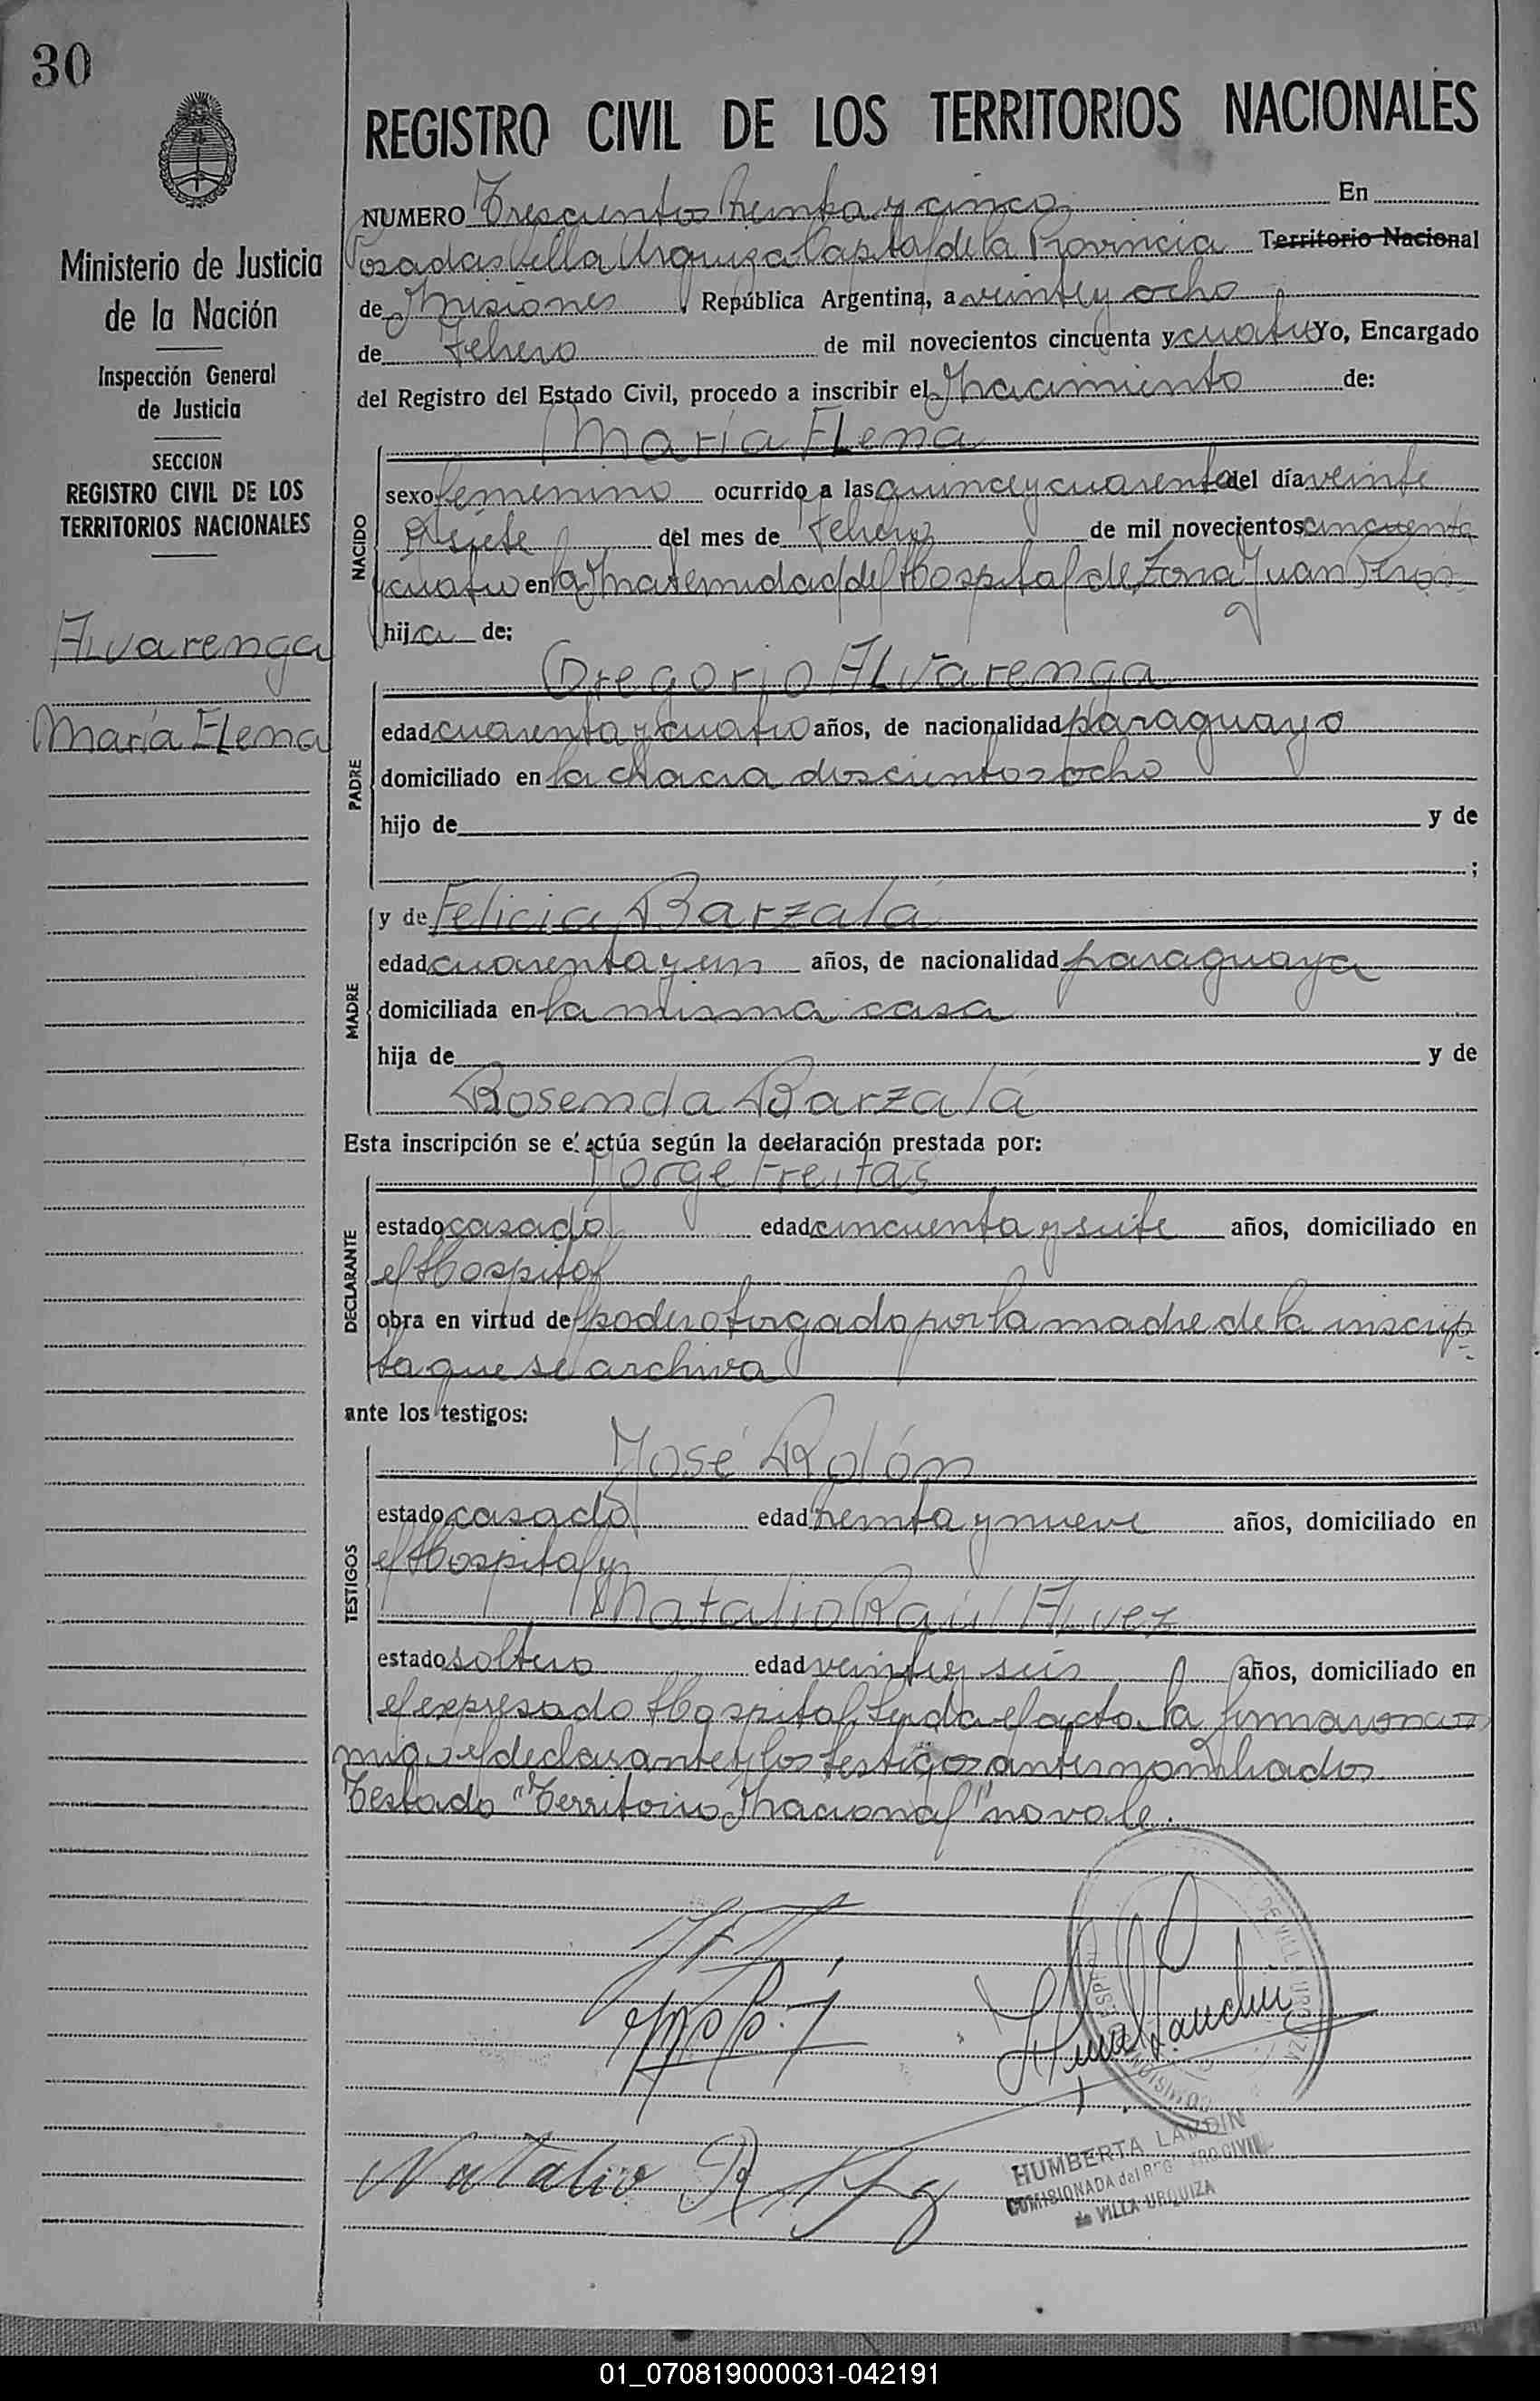 30
Ministerio de Justicia
de la Nación
Inspección General
de Justicia
SECCION
REGISTRO CIVIL DE LOS
TERRITORIOS NACIONALES
Alvarenga
María Elena
REGISTRO CIVIL DE LOS TERRITORIOS NACIONALES
NUMERO Trescientos treinta y cinco En
Posadas Villa Urquiza Capital de la Provincia Territorio Nacional
de Misiones República Argentina, a veinte y ocho
de Febrero de mil novecientos cincuenta y cuatro Yo, Encargado
del Registro del Estado Civil, procedo a inscribir el Nacimiento de:
María Elena
NACIDO
sexo femenino ocurrido a las quince y cuarenta del día veinte
y siete del mes de Febrero de mil novecientos cincuenta
y cuatro en la Maternidad del Hospital de Zona Juan Perón
hija de:
Gregorio Alvarenga
PADRE
edad cuarenta y cuatro años, de nacionalidad paraguayo
domiciliado en la chacra doscientos ocho
hijo de y de
;
y de Felicia Barzalá
MADRE
edad cuarenta y un años, de nacionalidad paraguaya
domiciliada en la misma casa
hija de y de
Rosenda Barzalá
Esta inscripción se efectúa según la declaración prestada por:
Jorge Freitas
DECLARANTE
estado casado edad cincuenta y siete años, domiciliado en
el Hospital
obra en virtud del poder otorgado por la madre de la inscrip
ta que se archiva
ante los testigos:
José Rolón
TESTIGOS
estado casado edad treinta y nueve años, domiciliado en
el Hospital y
Natalio Raúl Alvez
estado soltero edad veinte y seis años, domiciliado en
el expresado Hospital. Leída el acta la firmaron con
migo el declarante y los testigos antes nombrados
Testado "Territorio Nacional" no vale.
Natalio R
HUMBERTA LANDIN
COMISIONADA del REGISTRO CIVIL
de VILLA URQUIZA
01_070819000031-042191